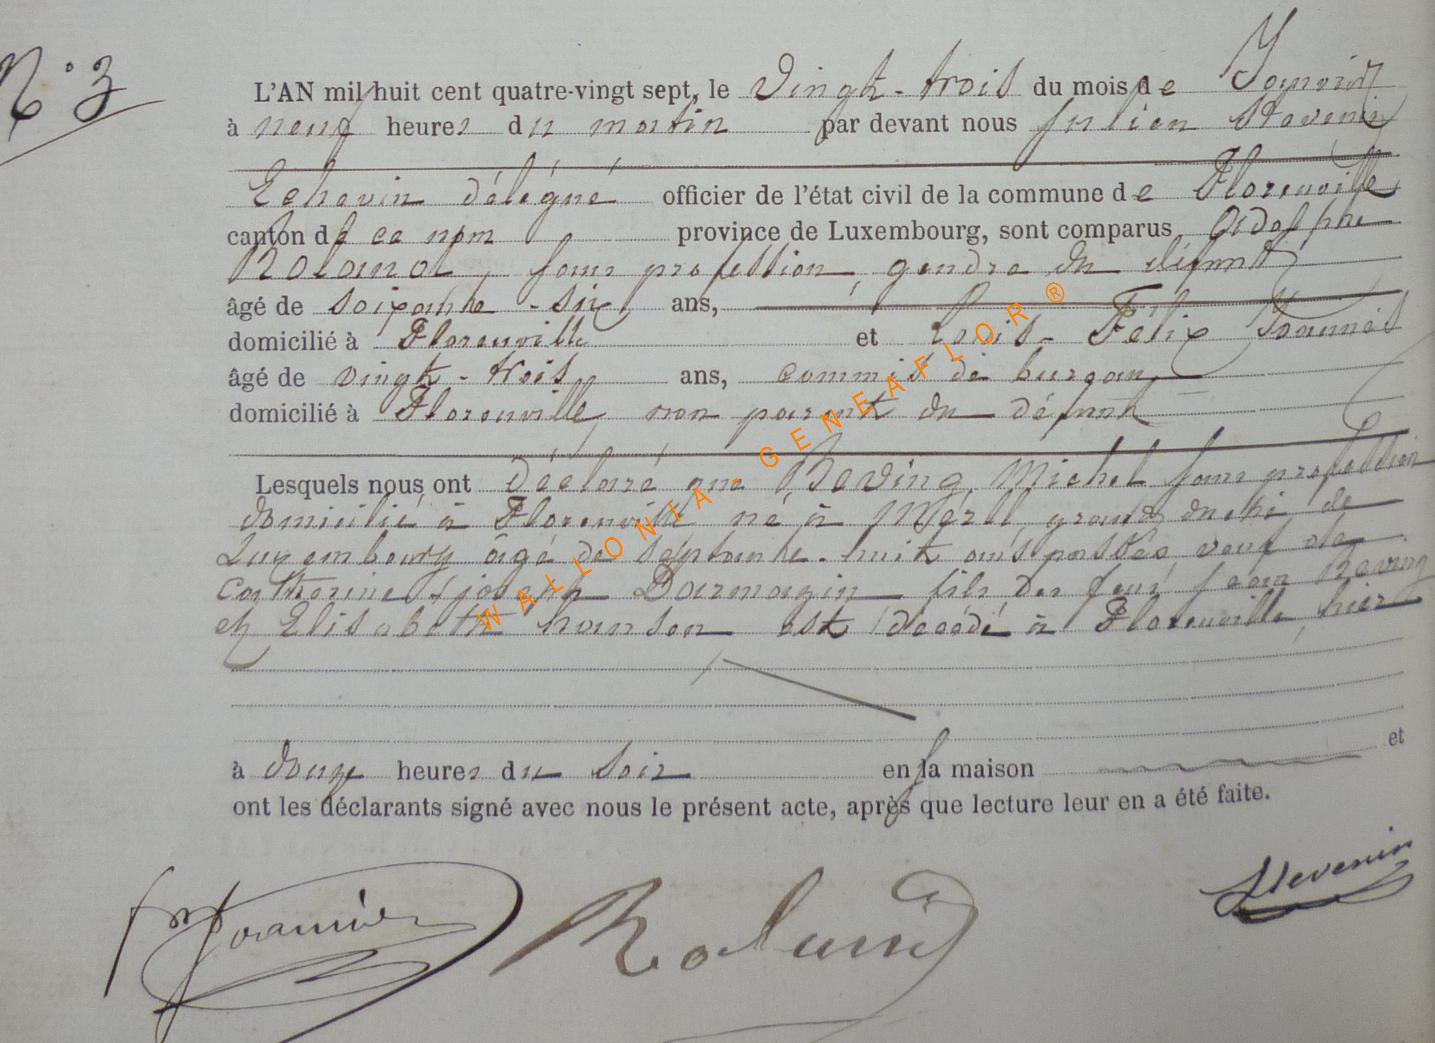 N° 3
L'AN mil huit cent quatre-vingt sept, le Vingt-trois du mois de Janvier
à neuf heures du matin par devant nous Julien Stevenin
Echevin délégué officier de l'état civil de la commune de Florenville
canton de ce nom province de Luxembourg, sont comparus Adolphe
Roland, sans profession, gendre du défunt
âgé de soixante-six ans,
domicilié à Florenville et Louis-Félix
âgé de vingt-trois ans, commis de bureau,
domicilié à Florenville, non parent du défunt
Lesquels nous ont déclaré que Beving, Michel sans profession
domicilié à Florenville né à Merl, grand duché de
Luxembourg âgé de septante-huit ans passés, veuf de
Catherine Darmazin fils des feus Jean Beving
et Elisabeth hanson est décédé à Florenville, hier
à douze heures du soir en sa maison et
ont les déclarants signé avec nous le présent acte, après que lecture leur en a été faite.
Roland
Stevenin
WALLONIA-GENEAFLOR®